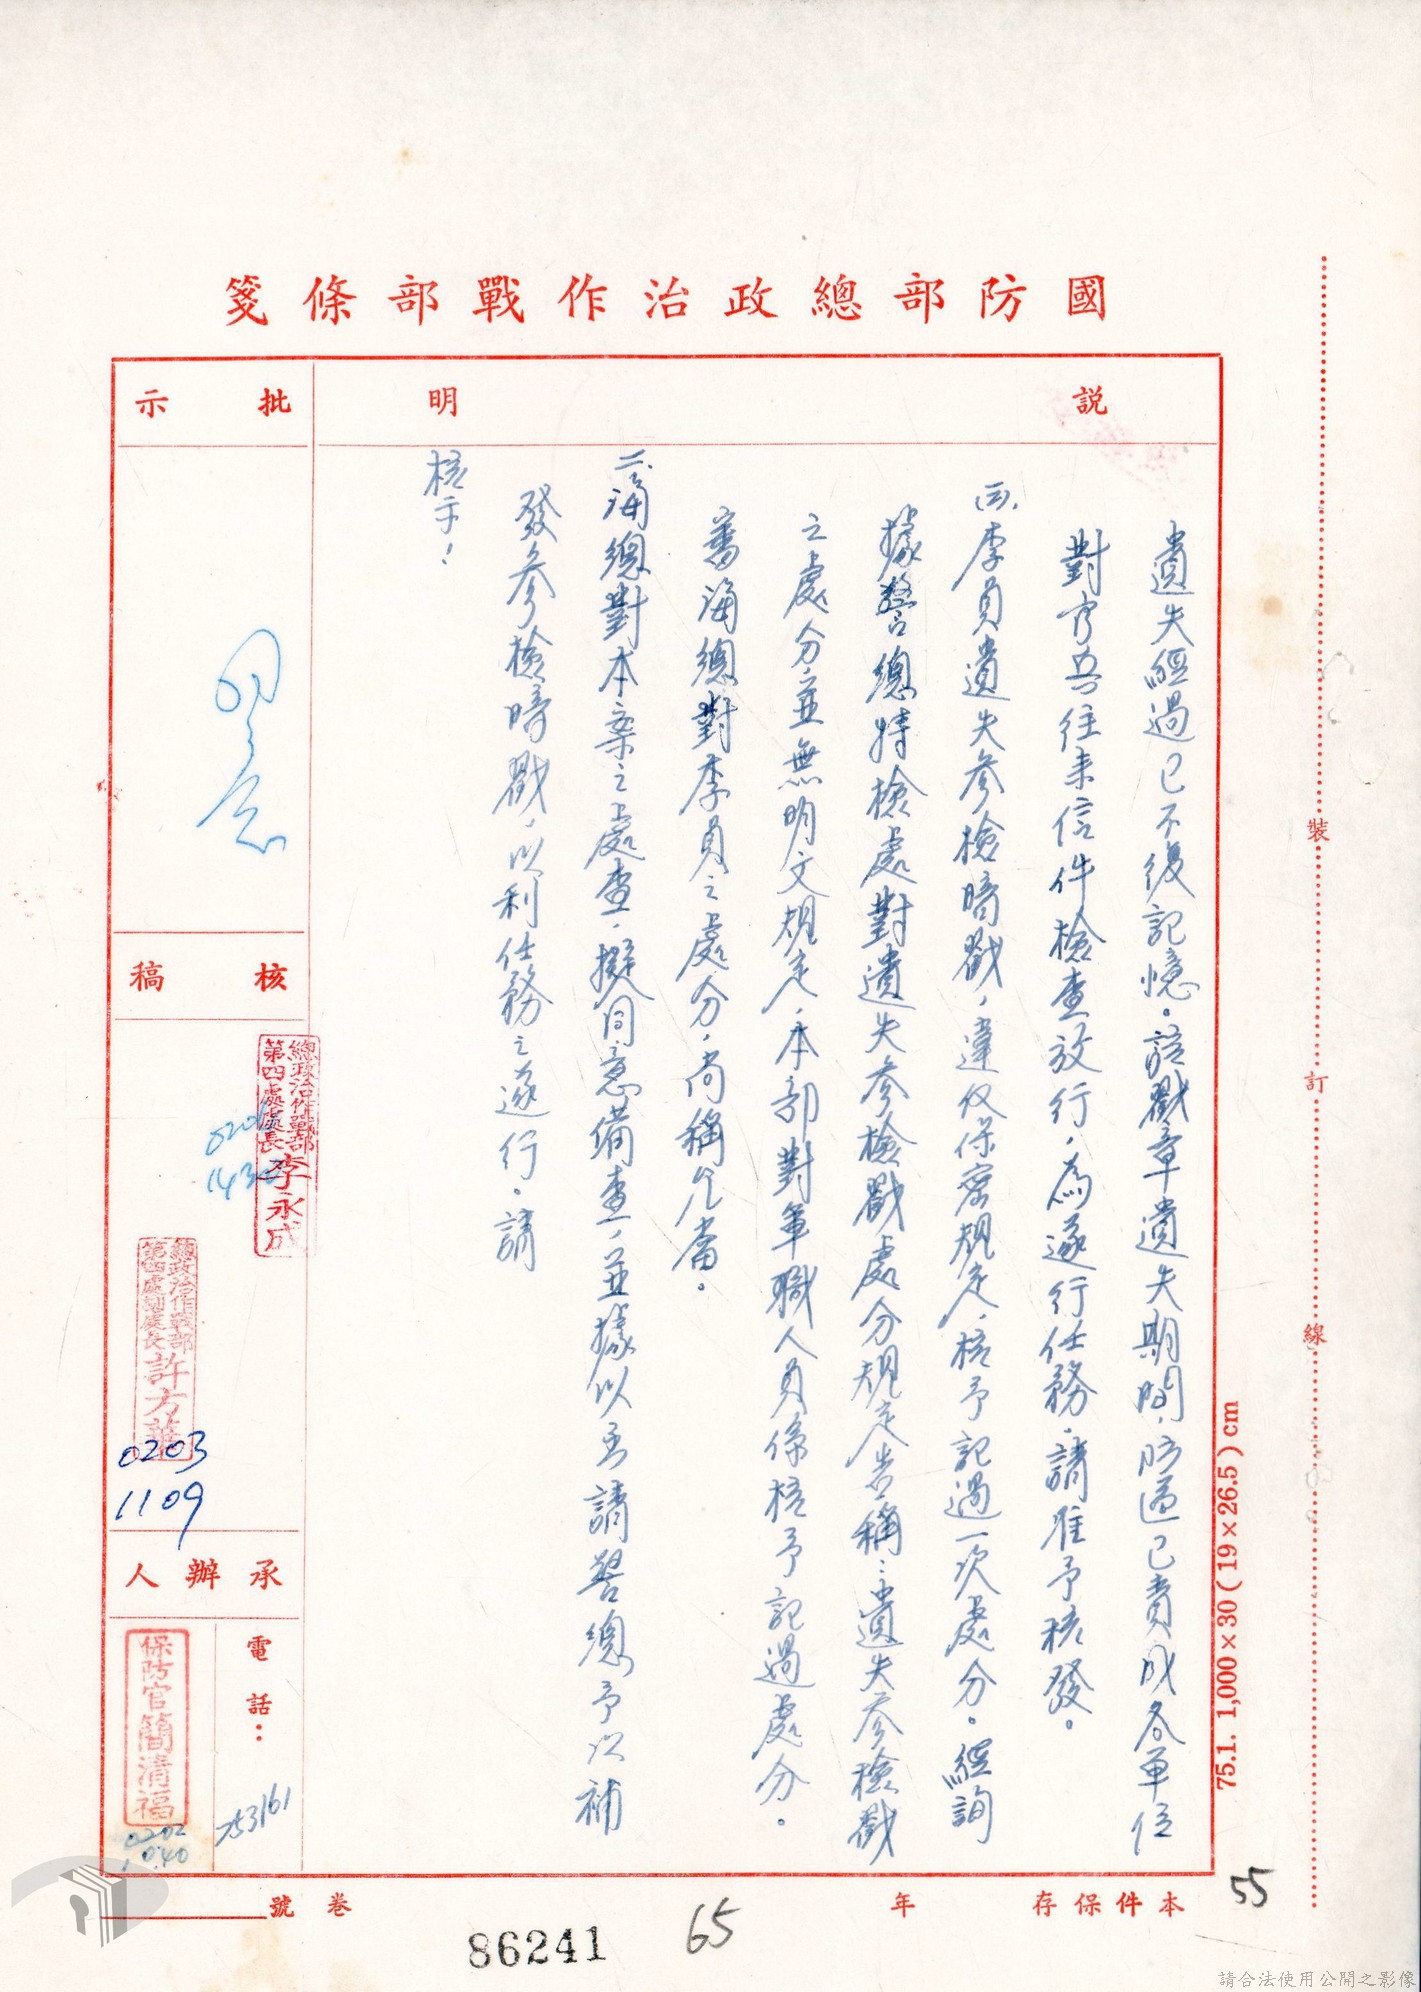 國防部總政治作戰部條箋
說明
遺失經過已不復記憶。該戳章遺失期間，防區已責成各單位
對官兵往來信件檢查放行，為遂行任務，請准予核發。
四、李員遺失參檢暗戳，違反保密規定，核予記過一次處分。經詢
據警總特檢處對遺失參檢戳處分規定告稱：遺失參檢戳
之處分，並無明文規定，本部對軍職人員係核予記過處分。
海總對李員之處分，尚稱允當。
二、海總對本案之處查，擬同意備查，並據以函請警總予以補
發參檢暗戳，以利任務之遂行。請
核示！
批示
核稿
總政治作戰部
第四處處長 李永成
總政治作戰部
第四處副處長 許方華
0203
1109
承辦人
電話：
753161
保防官簡清福
0202
1040
裝
訂
線
75.1. 1,000×30(19×26.5)cm
本件保存 年
卷 號
55
65
86241
請合法使用公開之影像